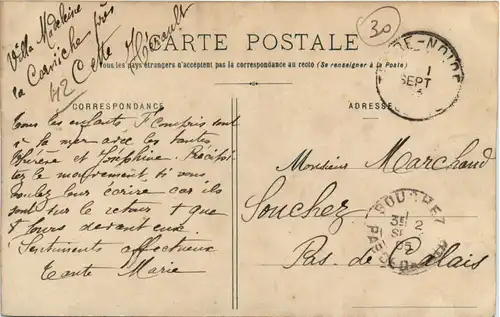 Villa Madeleine
la Corniche près
Cette Hérault
42
30
CARTE POSTALE
Tous les pays étrangers n'acceptent pas la correspondance au recto (Se renseigner à la Poste)
CORRESPONDANCE
ADRESSE
Tous les enfants F compris sont
à la mer avec les tantes
Thérèse et Joséphine. Précipi-
tez le mouvement si vous
voulez leur écrire car ils
sont sur le retour & que
jours devant eux.
Sentiments affectueux
Tante Marie
Monsieur Marchand
Souchez
Pas de Calais
1
SEPT
SOUCHEZ
2
PAS DE CALAIS